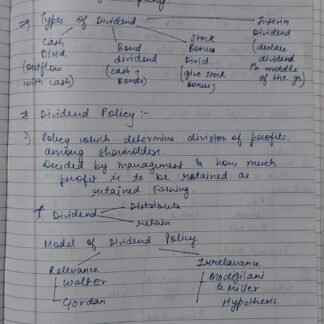 => Types of Dividend
Cash Divid. (outflow with cash)
Bond dividend (cash + Bonds)
Stock Bonus Divid. (give stock bonus)
Interim Dividend (declare dividend in middle of the yr)
=> Dividend Policy :-
Policy which determine division of profits
among shareholders.
Decided by management & how much
profit is to be retained as
retained Earning.
Dividend
Distribute
retain
Model of Dividend Policy
Relevance
Walter
Gordan
Irrelavance
Modigliani
& Miller
Hypothesis.